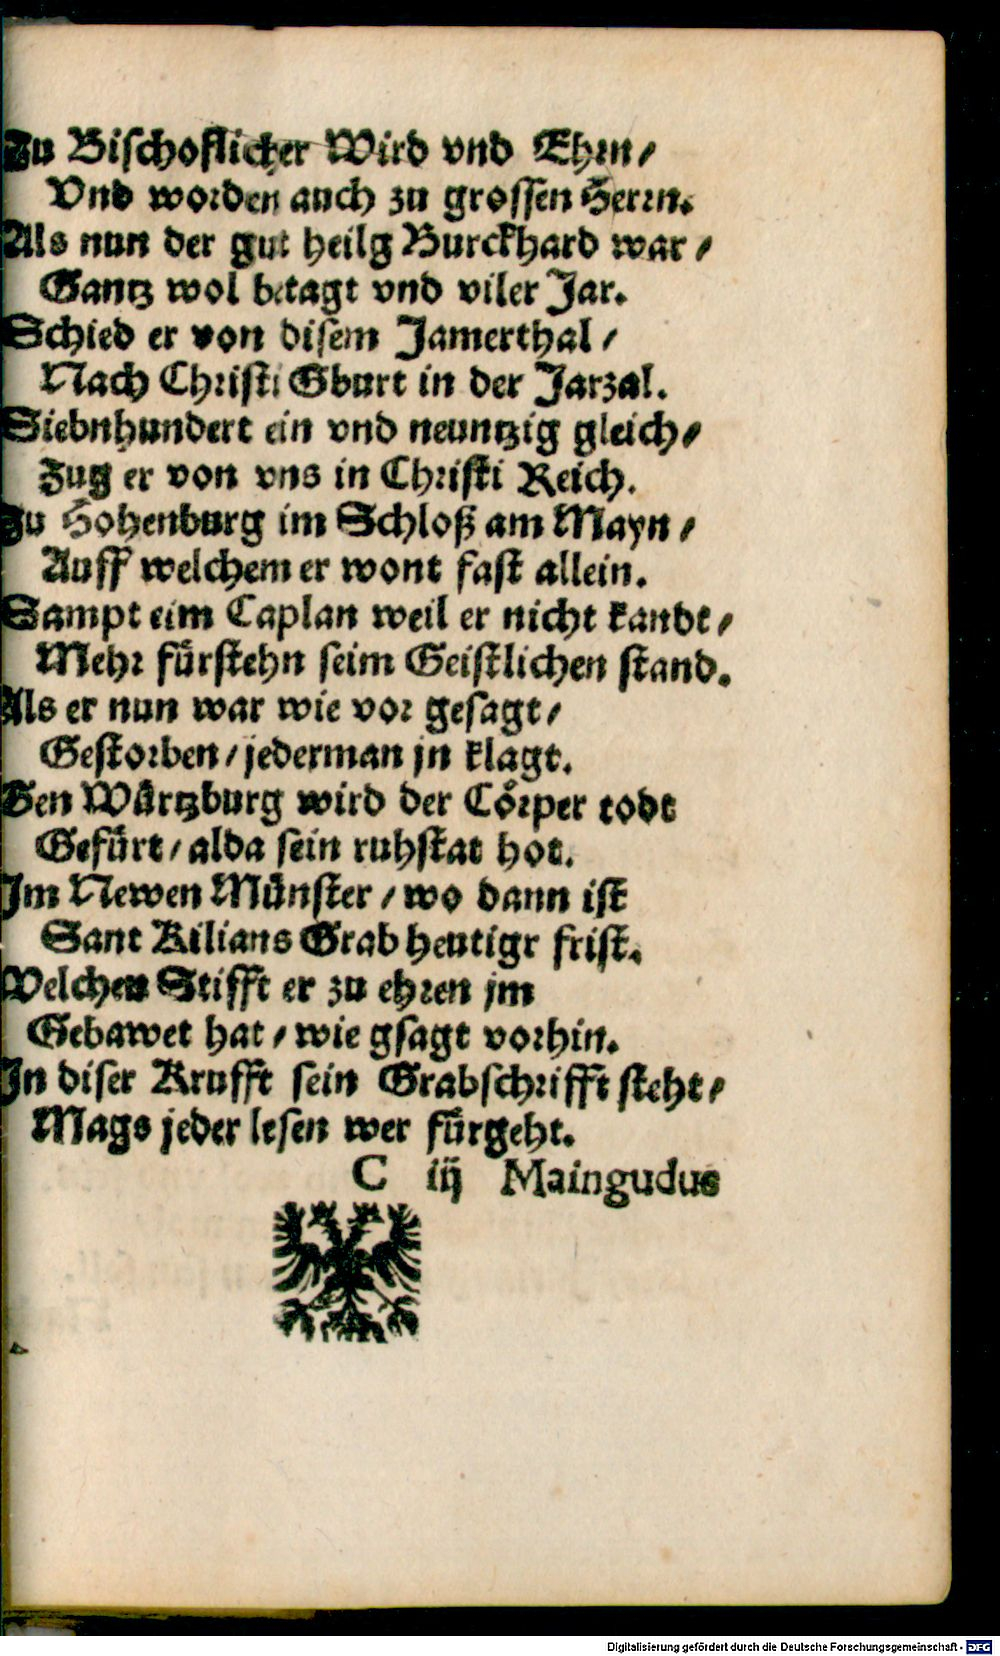 Zu Bischoflicher Wird vnd Ehrn/
Vnd worden auch zu grossen Herrn.
Als nun der gut heilg Burckhard war/
Gantz wol betagt vnd viler Jar.
Schied er von disem Jamerthal/
Nach Christi Gburt in der Jarzal.
Siebnhundert ein vnd neuntzig gleich/
Zug er von vns in Christi Reich.
Zu Hohenburg im Schloß am Mayn/
Auff welchem er wont fast allein.
Sampt eim Caplan weil er nicht kandt/
Mehr fürstehn seim Geistlichen stand.
Als er nun war wie vor gesagt/
Gestorben/jederman jn klagt.
Gen Würtzburg wird der Cörper todt
Gefürt/alda sein ruhstat hot.
Im Newen Münster/wo dann ist
Sant Kilians Grab heutigr frist.
Welchen Stifft er zu ehren jm
Gebawet hat/wie gsagt vorhin.
In diser Krufft sein Grabschrifft steht/
Mags jeder lesen wer fürgeht.
C iij Maingudus
Digitalisierung gefördert durch die Deutsche Forschungsgemeinschaft - DFG